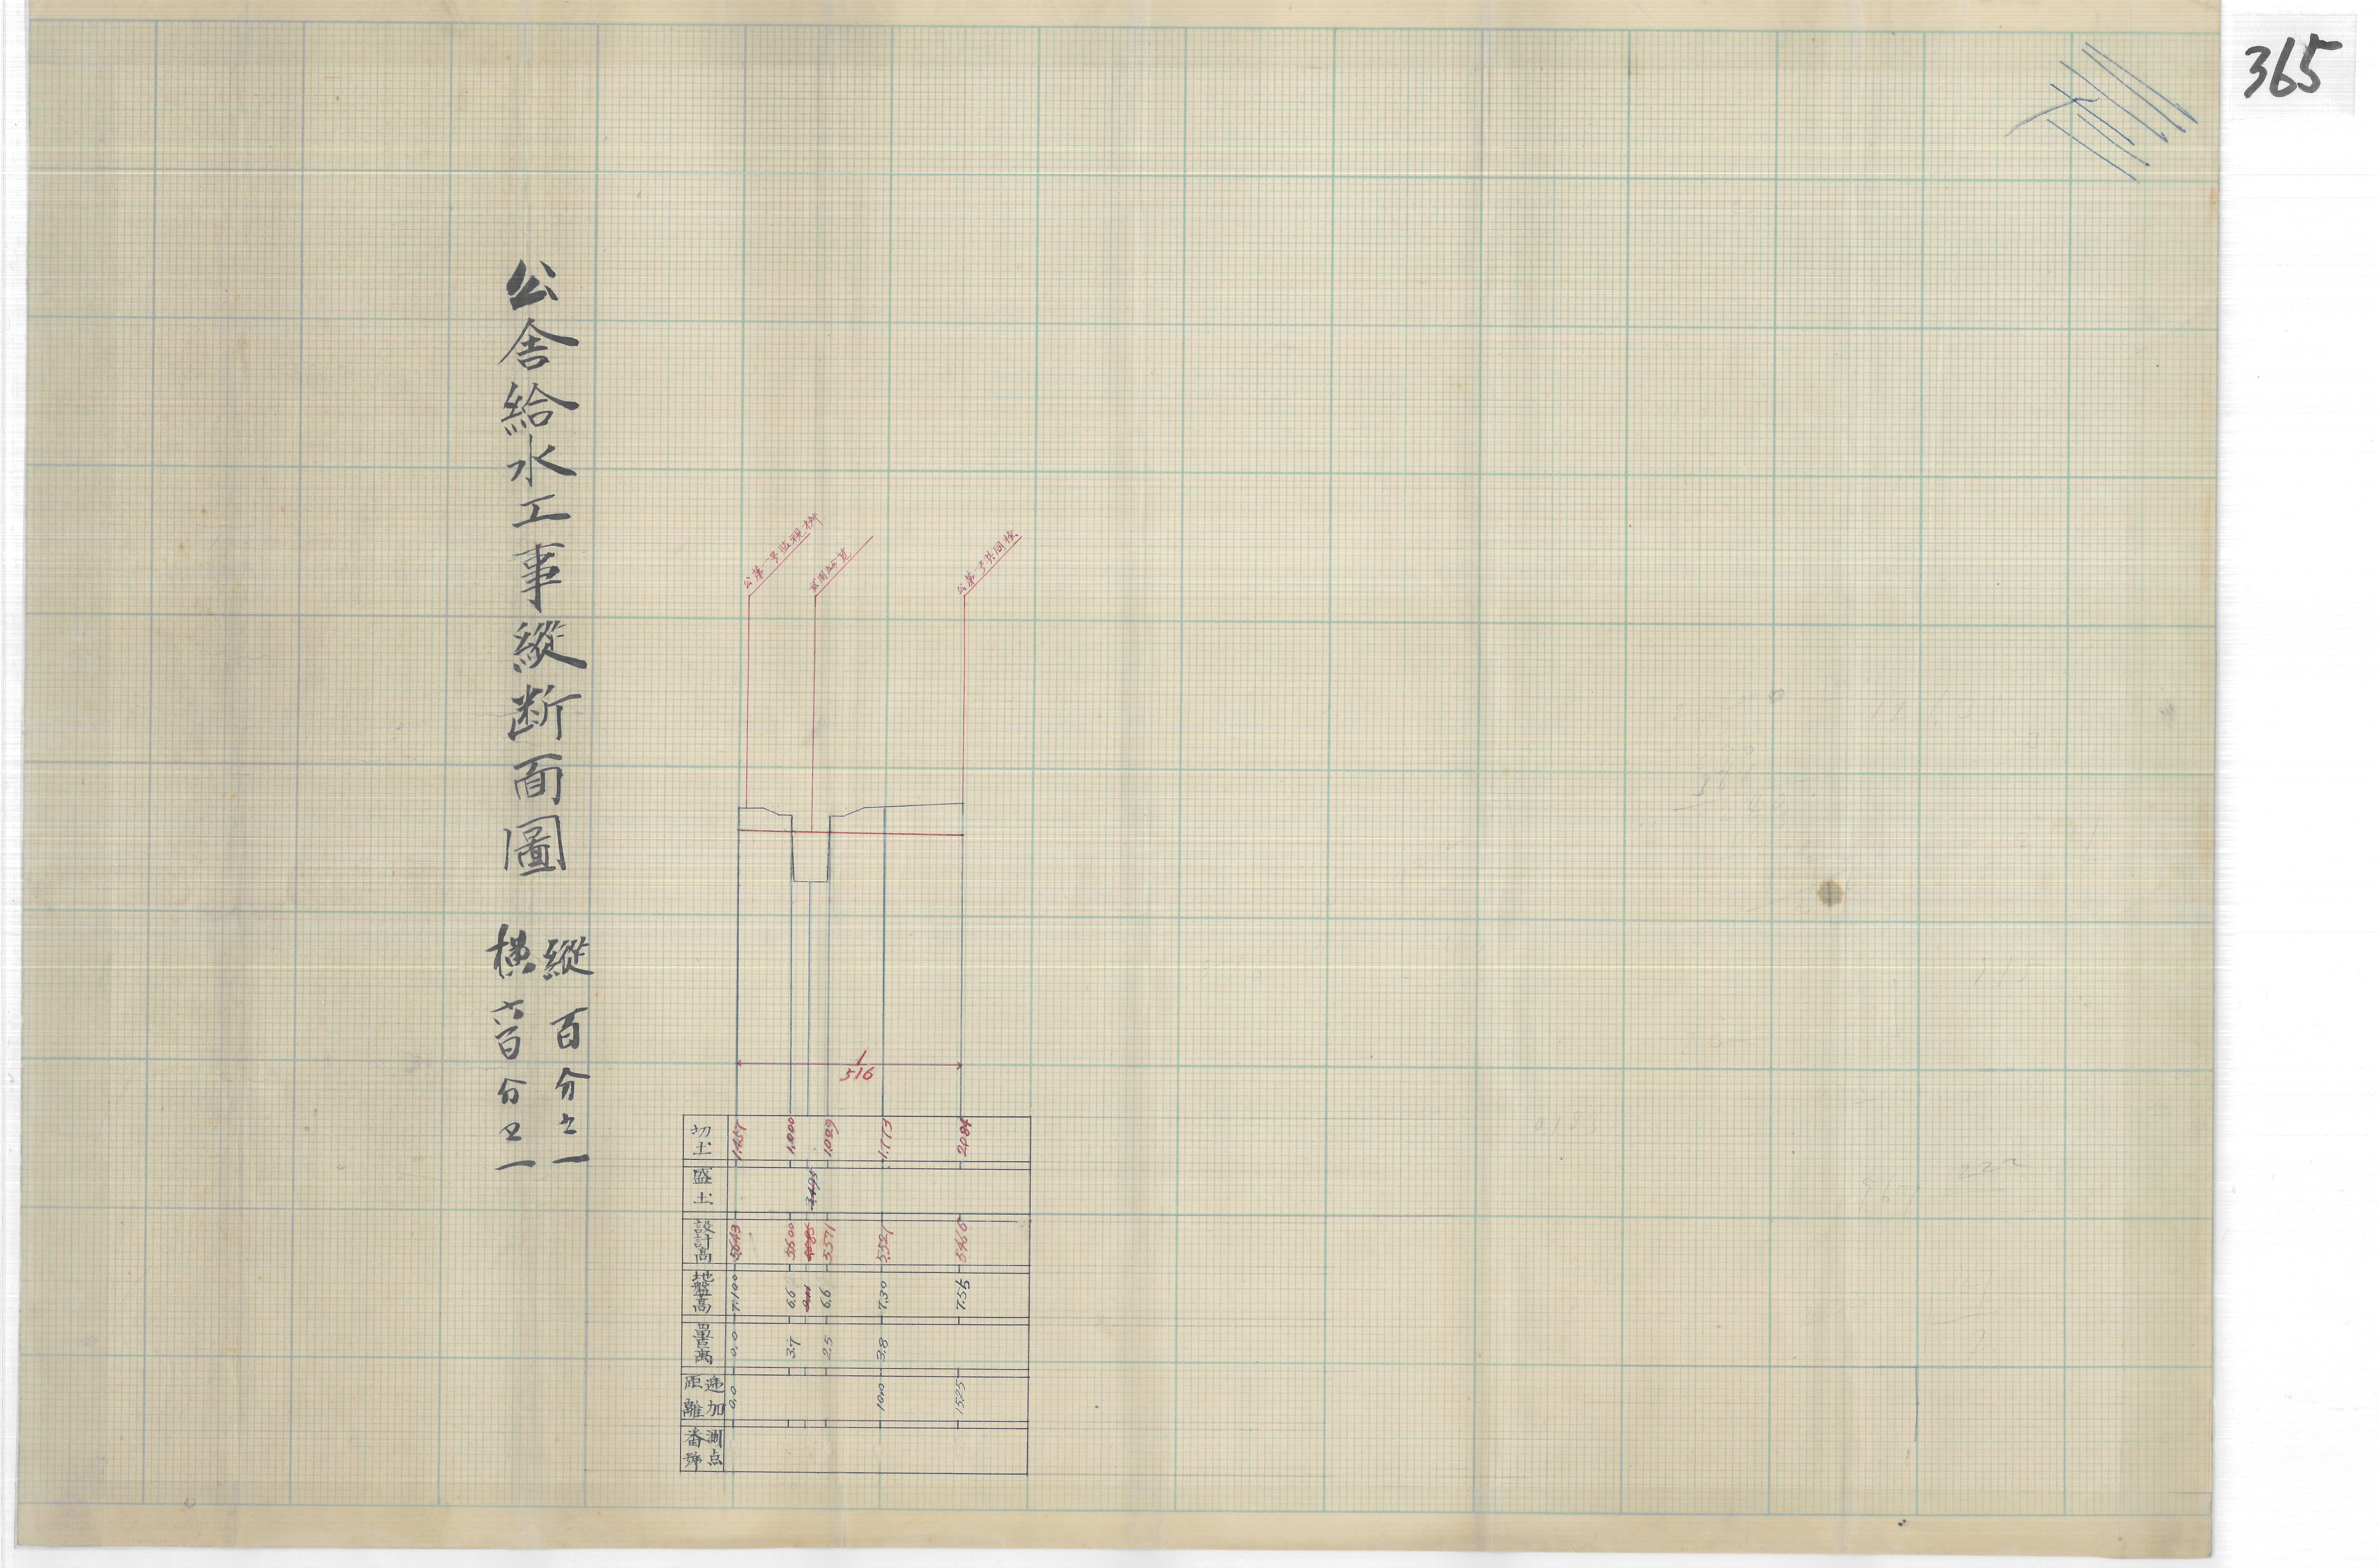 365
公舍給水工事縱断面圖
縱 百分之一
橫 六百分之一
公第一号監視桝
公第一号共同栓
1
516
切土 1.457 1.000 1.029 1.773 2.084
盛土 3.495
設計高 5.643 5.600 5.571 5.527 5.466
地盤高 7.100 6.6 6.6 7.30 7.55
0.0 3.7 2.5 3.8
逓加距離 0.0 10.0 15.25
測点番号